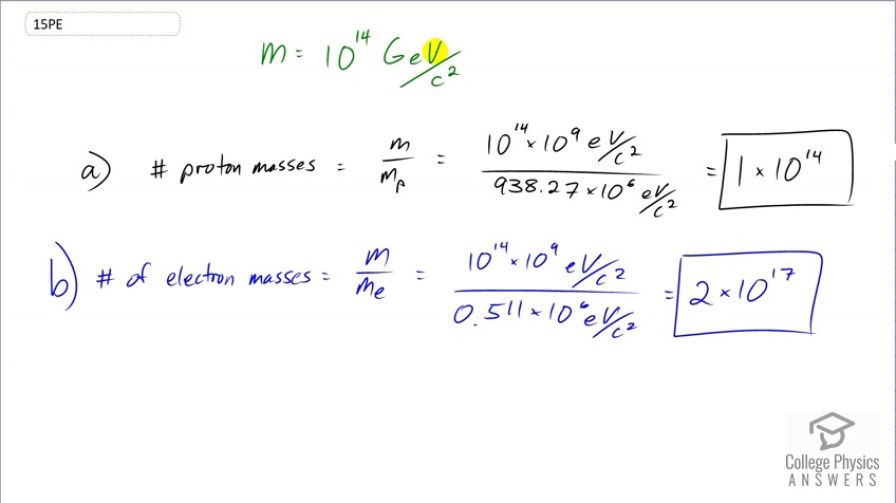 15PE
m = 10¹⁴ GeV/c²
a) # proton masses = m/mₚ = 10¹⁴ × 10⁹ eV/c² / 938.27 × 10⁶ eV/c² = 1 × 10¹⁴
b) # of electron masses = m/mₑ = 10¹⁴ × 10⁹ eV/c² / 0.511 × 10⁶ eV/c² = 2 × 10¹⁷
College Physics
ANSWERS